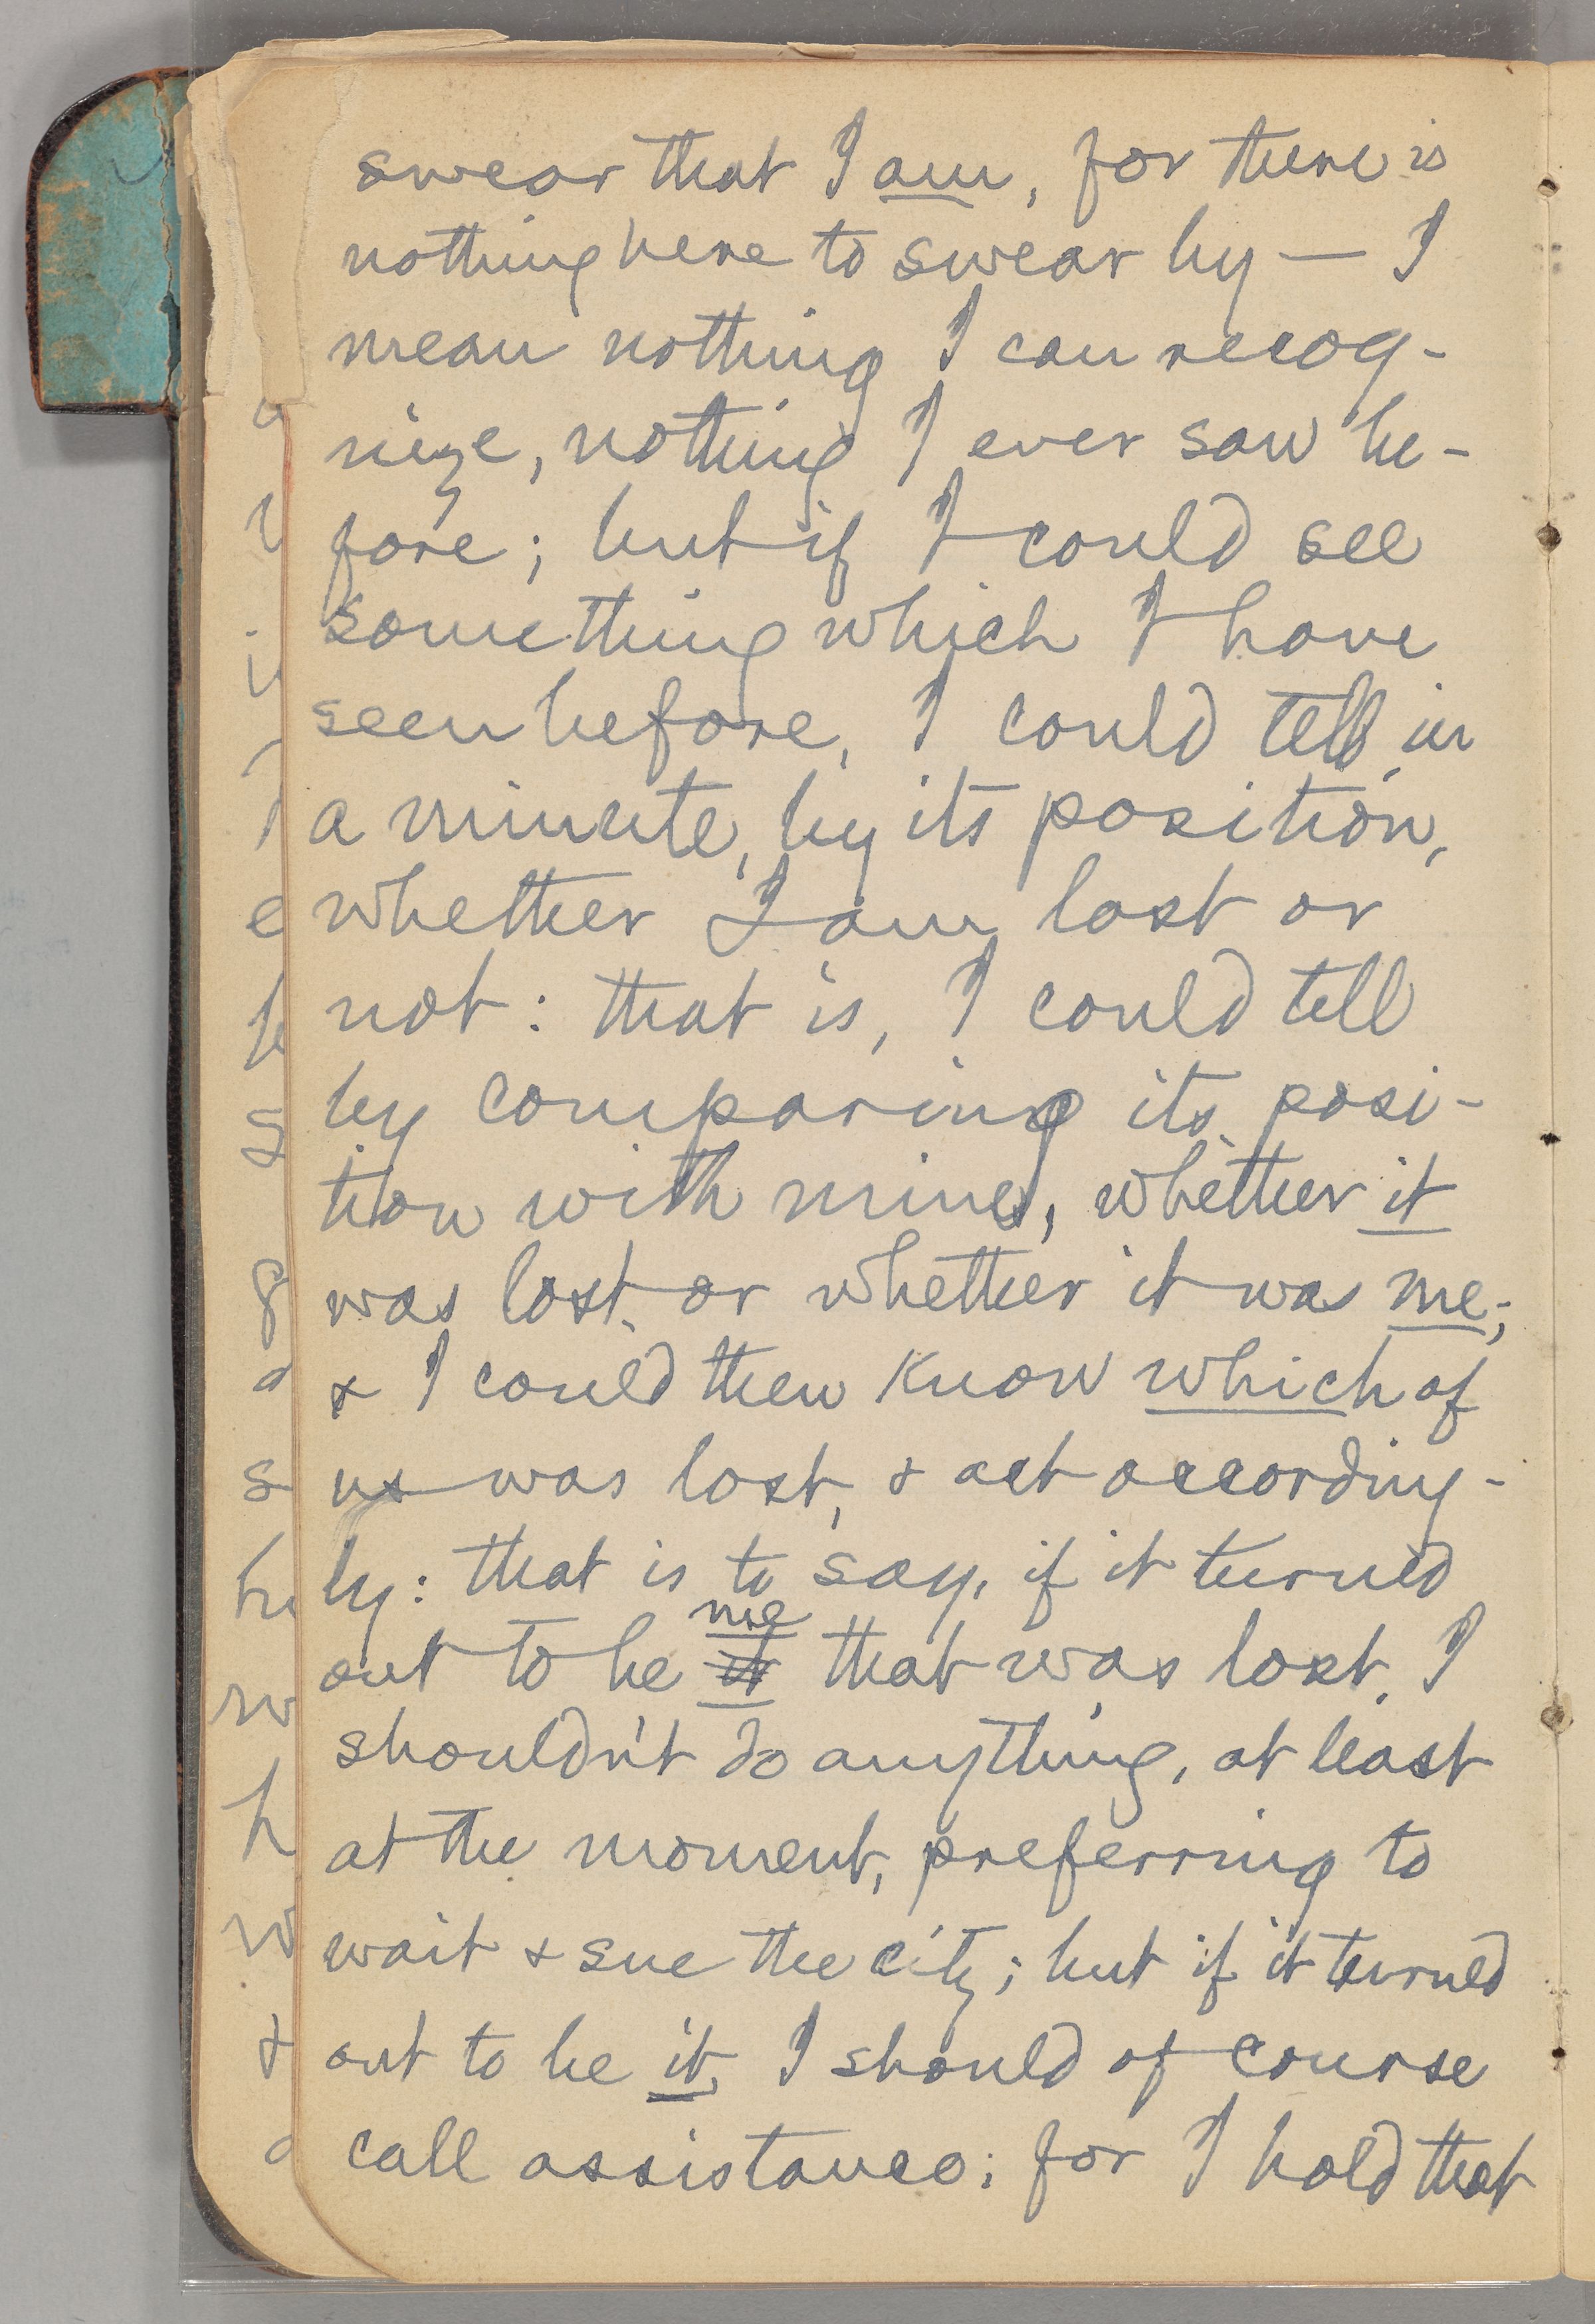 swear that I am, for there is
nothing here to swear by — I
mean nothing I can recog-
nize, nothing I ever saw be-
fore; but if I could see
something which I have
seen before, I could tell, in
a minute, by its position,
whether I am lost or
not: that is, I could tell
by comparing its posi-
tion with mine, whether it
was lost or whether it was me;
& I could then know which of
us was lost, & act according-
ly: that is to say, if it turned
me
out to be it that was lost, I
shouldn't do anything, at least
at the moment, preferring to
wait & sue the city; but if it turned
out to be it, I should of course
call assistance; for I hold that